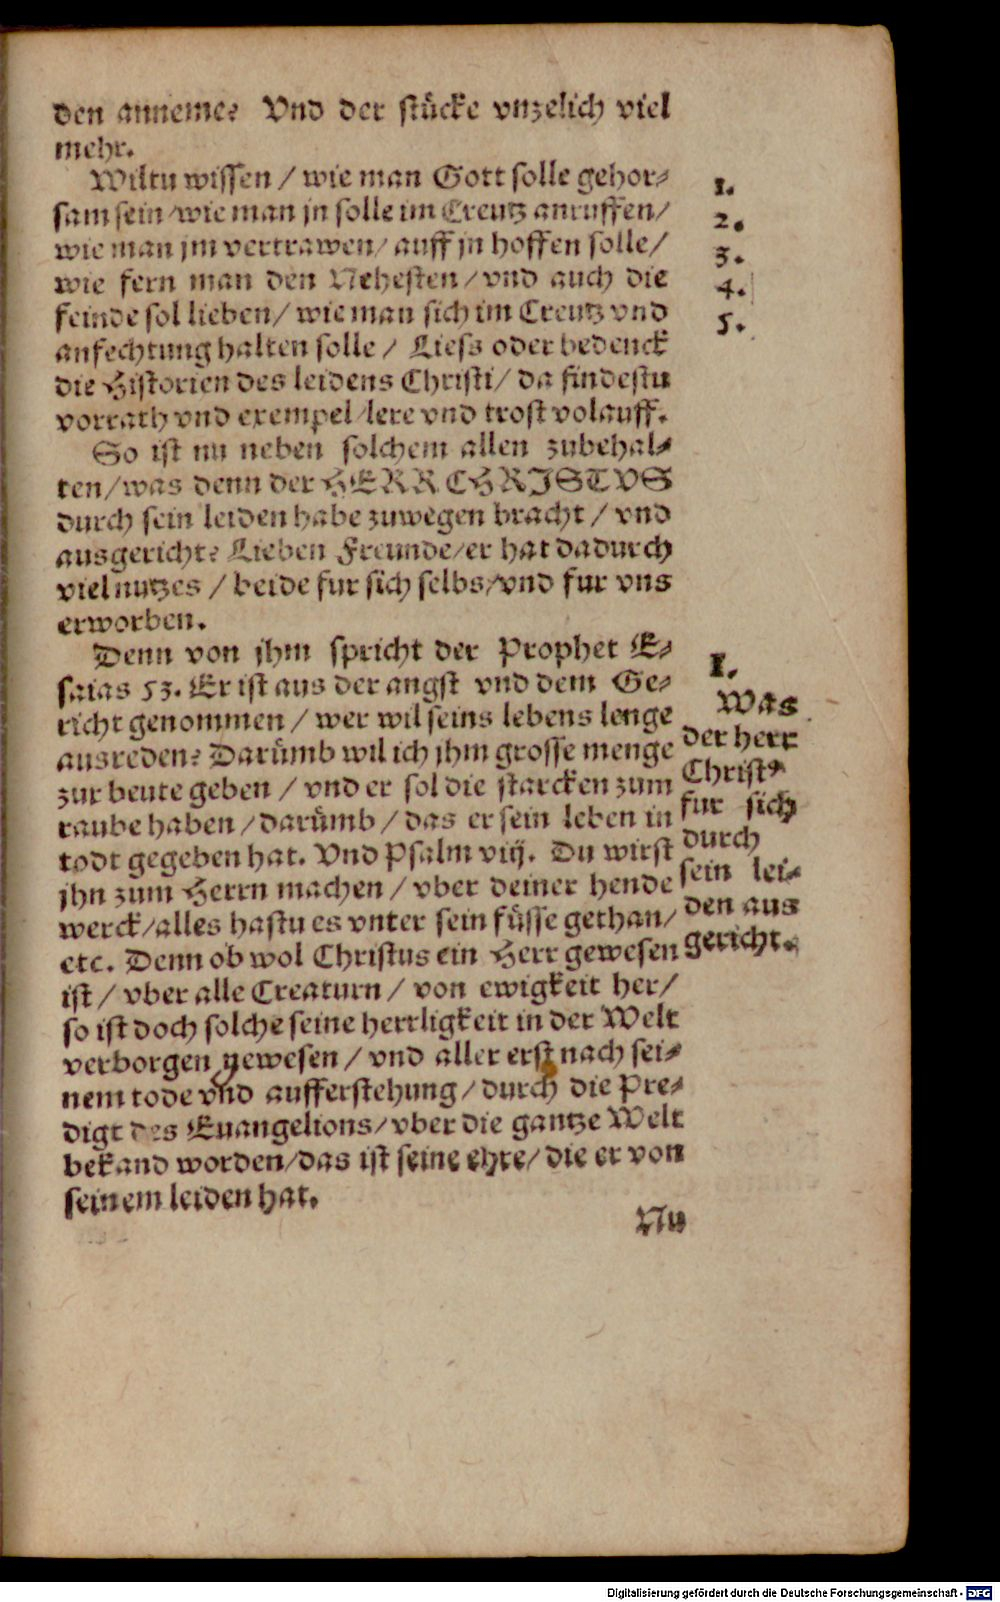 den anneme? Vnd der stücke vnzelich viel
mehr.
Wiltu wissen / wie man Gott solle gehor⸗
sam sein / wie man jn solle im Creutz anruffen /
wie man jm vertrawen / auff jn hoffen solle /
wie fern man den Nehesten / vnd auch die
feinde sol lieben / wie man sich im Creutz vnd
anfechtung halten solle / Liess oder bedenck
die Historien des leidens Christi / da findestu
vorrath vnd exempel / lere vnd trost volauff.
1.
2.
3.
4.
5.
So ist nu neben solchem allen zubehal⸗
ten / was denn der HERR CHRISTVS
durch sein leiden habe zuwegen bracht / vnd
ausgericht? Lieben Freunde / er hat dadurch
viel nutzes / beide fur sich selbs / vnd fur vns
erworben.
Denn von jhm spricht der Prophet E⸗
saias 53. Er ist aus der angst vnd dem Ge⸗
richt genommen / wer wil seins lebens lenge
ausreden? Darümb wil ich jhm grosse menge
zur beute geben / vnd er sol die starcken zum
raube haben / darümb / das er sein leben in
todt gegeben hat. Vnd Psalm viij. Du wirst
jhn zum Herrn machen / vber deiner hende
werck / alles hastu es vnter sein füsse gethan /
etc. Denn ob wol Christus ein Herr gewesen
ist / vber alle Creaturn / von ewigkeit her /
so ist doch solche seine herrligkeit in der Welt
verborgen gewesen / vnd aller erst nach sei⸗
nem tode vnd aufferstehung / durch die Pre⸗
digt des Euangelions / vber die gantze Welt
bekand worden / das ist seine ehre / die er von
seinem leiden hat.
I.
Was
der herr
Christꝰ
fur sich
durch
sein lei⸗
den aus
gericht.
Nu
Digitalisierung gefördert durch die Deutsche Forschungsgemeinschaft - DFG